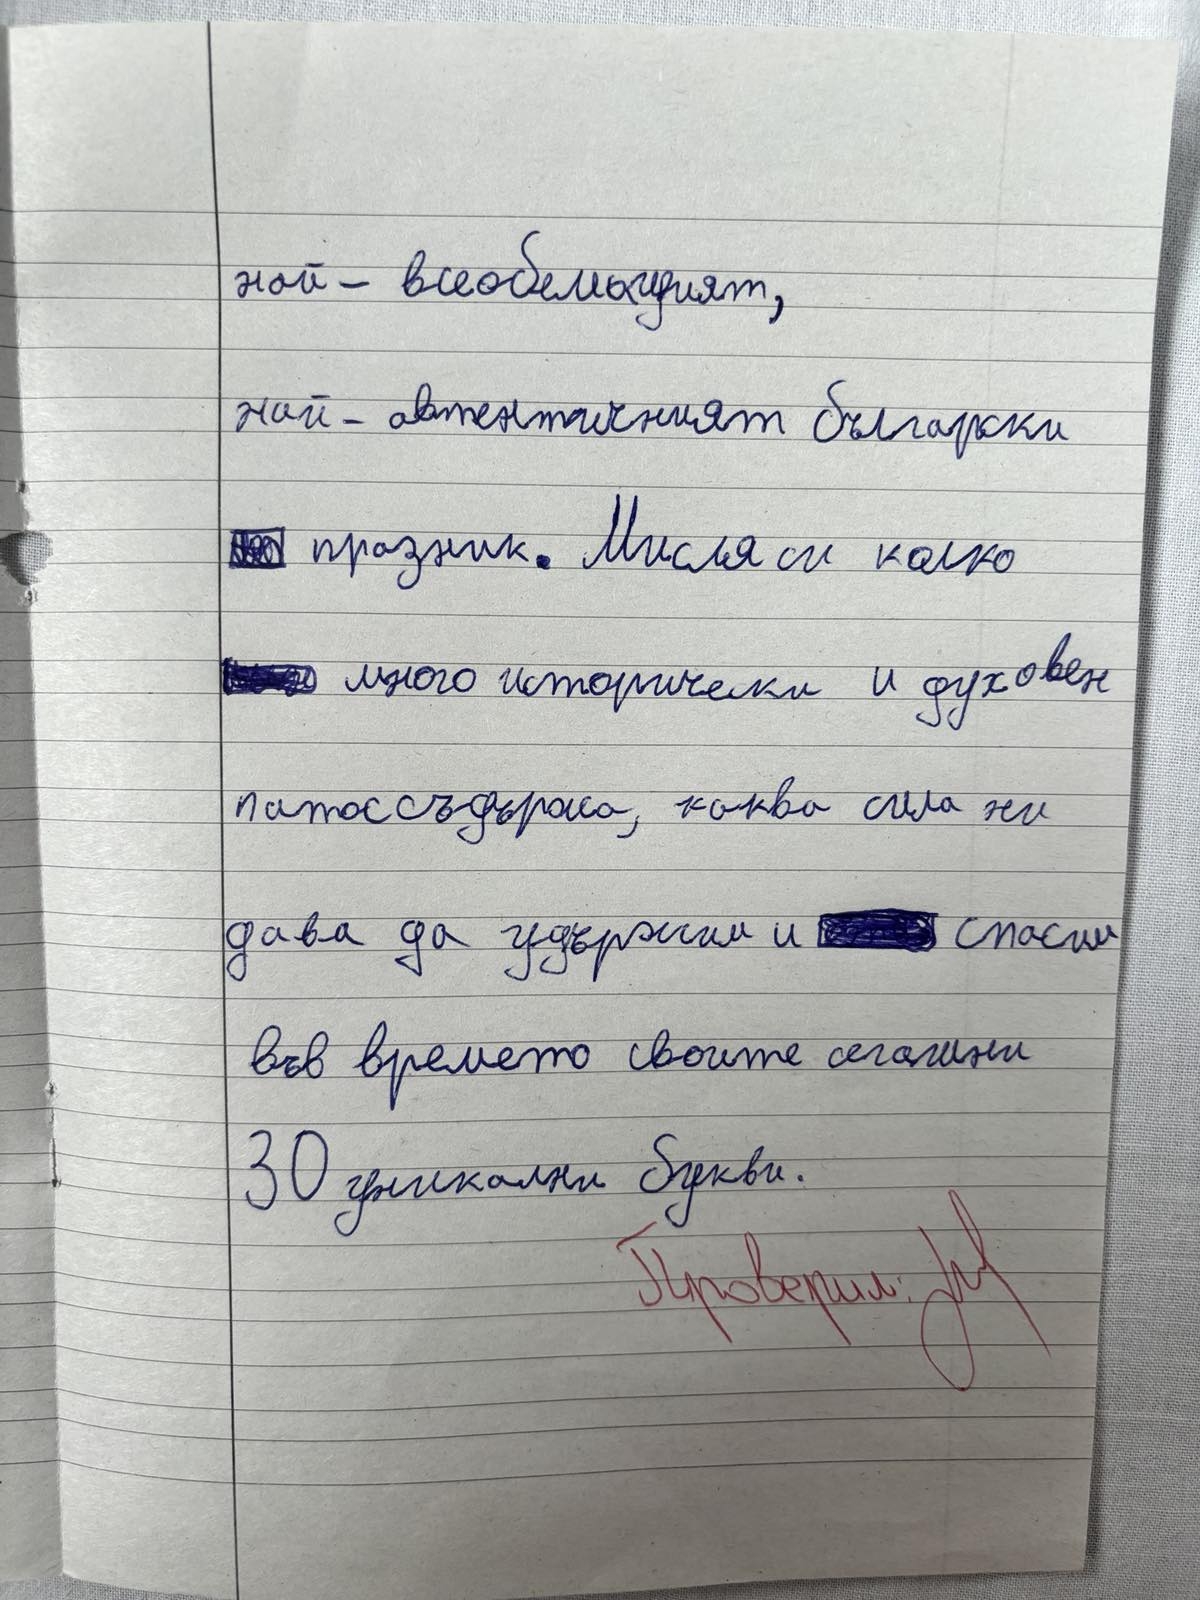 най- всеобемащият,
най- автентичният български
празник. Мисля си колко
много исторически и духовен
патос съдържа, каква сила ни
дава да удържим и спасим
във времето своите сегашни
30 уникални букви.
Проверил: